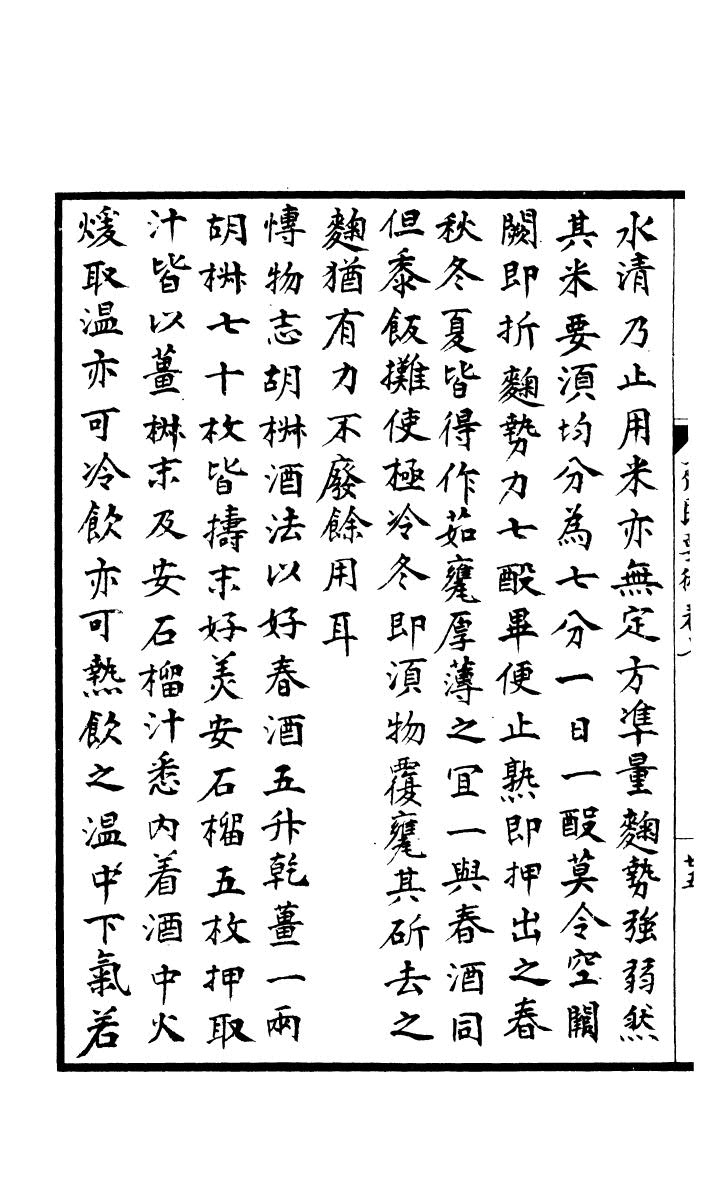 水清乃止用米亦無定方凖量麴勢強弱然
其米要湏均分為七分一日一酘莫令空闕
闕即折麴勢力七酘畢便止熟即押出之春
秋冬夏皆得作茹甕厚薄之宜一與春酒同
但黍飯攤使極冷冬即湏物覆甕其斫去之
麴猶有力不廢餘用耳
博物志胡椒酒法以好春酒五升乾薑一兩
胡椒七十枚皆擣末好美安石榴五枚押取
汁皆以薑椒末及安石榴汁悉内着酒中火
煖取温亦可冷飲亦可熱飲之温中下氣若